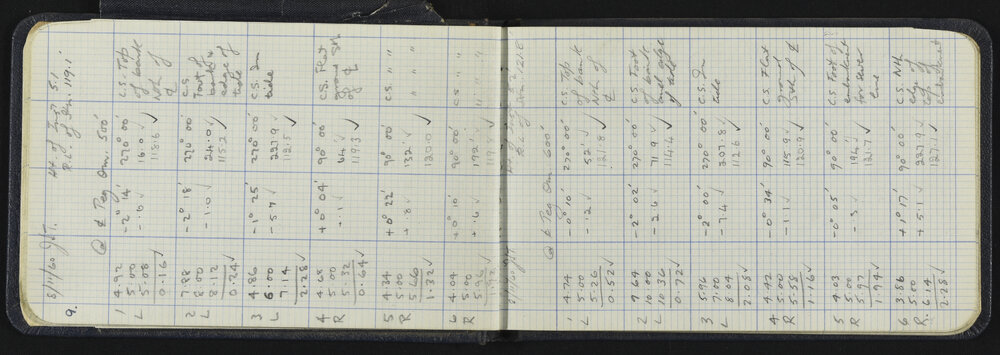 9. 8/11/60 Ht of Inst 5.1
R.L. of Stn. 119.1
@ ¢ Peg Om. 500'
1 4.92 -2° 14' 270° 00' C.S. Top
L 5.00 -.6 ✓ 16.0 ✓ of bank
5.08 118.6 Nth of
0.16 ✓ ¢
2 7.88 -2° 18' 270° 00' C.S.
L 8.00 -1.0 ✓ 24.0 ✓ Foot of
8.12 115.2 edge of
0.24 ✓ tide
3 4.86 -1° 25' 270° 00' C.S. In
L 6.00 -5.7 ✓ 227.9 ✓ tide
7.14 112.5
2.28 ✓
4 4.68 +0° 04' 90° 00' C.S. Flat
R 5.00 +.1 ✓ 64 ✓ ground Sth
5.32 119.3 of ¢
0.64 ✓
5 4.34 +0° 22' 90° 00' C.S. " "
R 5.00 +.8 ✓ 132 ✓ " "
5.66 120.0 "
1.32 ✓
6 4.04 +0° 10' 90° 00' C.S. " "
R 5.00 +.6 ✓ 192 ✓ " "
5.96 "
1.92 ✓
8/11/60 Ht of Inst
R.L. of Stn 121.8
@ ¢ Peg Om 600'
1 4.74 -0° 10' 270° 00' C.S. Top
L 5.00 -.2 ✓ 52 ✓ of bank
5.26 121.8 ✓ Nth of
0.52 ✓ ¢
2 9.64 -2° 02' 270° 00' C.S. Foot
L 10.00 -2.6 ✓ 71.9 ✓ of bank
10.36 114.4 ✓ and edge
0.72 ✓ of
3 5.96 -2° 00' 270° 00' C.S. In
L 7.00 -7.4 ✓ 207.8 ✓ tide
8.04 112.6
2.08 ✓
4 4.42 -0° 34' 90° 00' C.S. Flat
R 5.00 -1.1 ✓ 115.9 ✓ ground
5.58 120.8 Sth of ¢
1.16 ✓
5 4.03 -0° 05' 90° 00' C.S. Foot of
R 5.00 -.3 ✓ 194 ✓ embankment
5.97 121.7 for sewer
1.94 ✓ line
6 3.86 +1° 17' 90° 00' C.S. Nth
R. 5.00 +5.1 ✓ 227.9 ✓ edge
6.14 127.1 top of
2.28 ✓ embankment